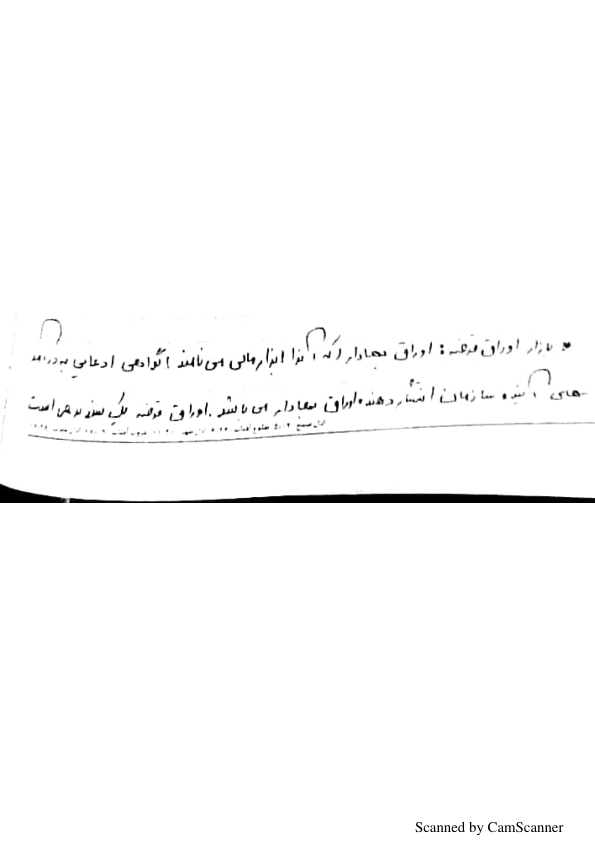 * بازار اوراق قرضه: اوراق بهادار (که آنرا ابزار مالی می نامند) گواهی ادعایی به درآمد
های آینده سازمان انتشار دهنده اوراق بهادار می باشد. اوراق قرضه یک سند بدهی است
Scanned by CamScanner